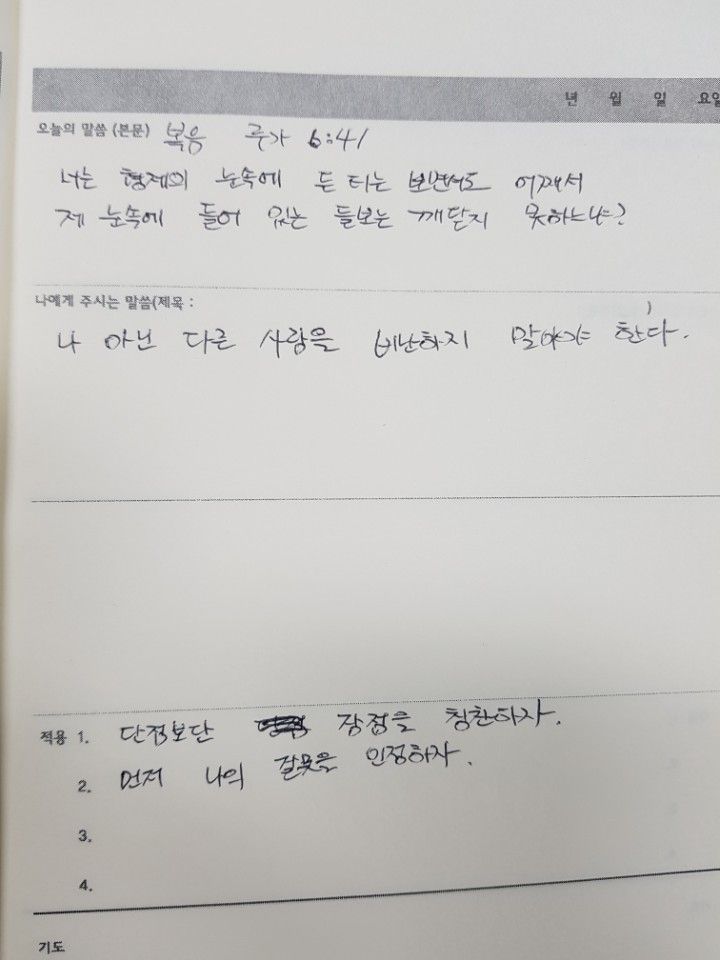 년 월 일 요일
오늘의 말씀 (본문) 복음 루가 6:41
너는 형제의 눈속에 든 티는 보면서도 어째서
제 눈속에 들어 있는 들보는 깨닫지 못하느냐?
나에게 주시는 말씀(제목 : )
나 아닌 다른 사람을 비난하지 말아야 한다.
적용 1. 단점보단 장점을 칭찬하자.
2. 먼저 나의 잘못을 인정하자.
3.
4.
기도